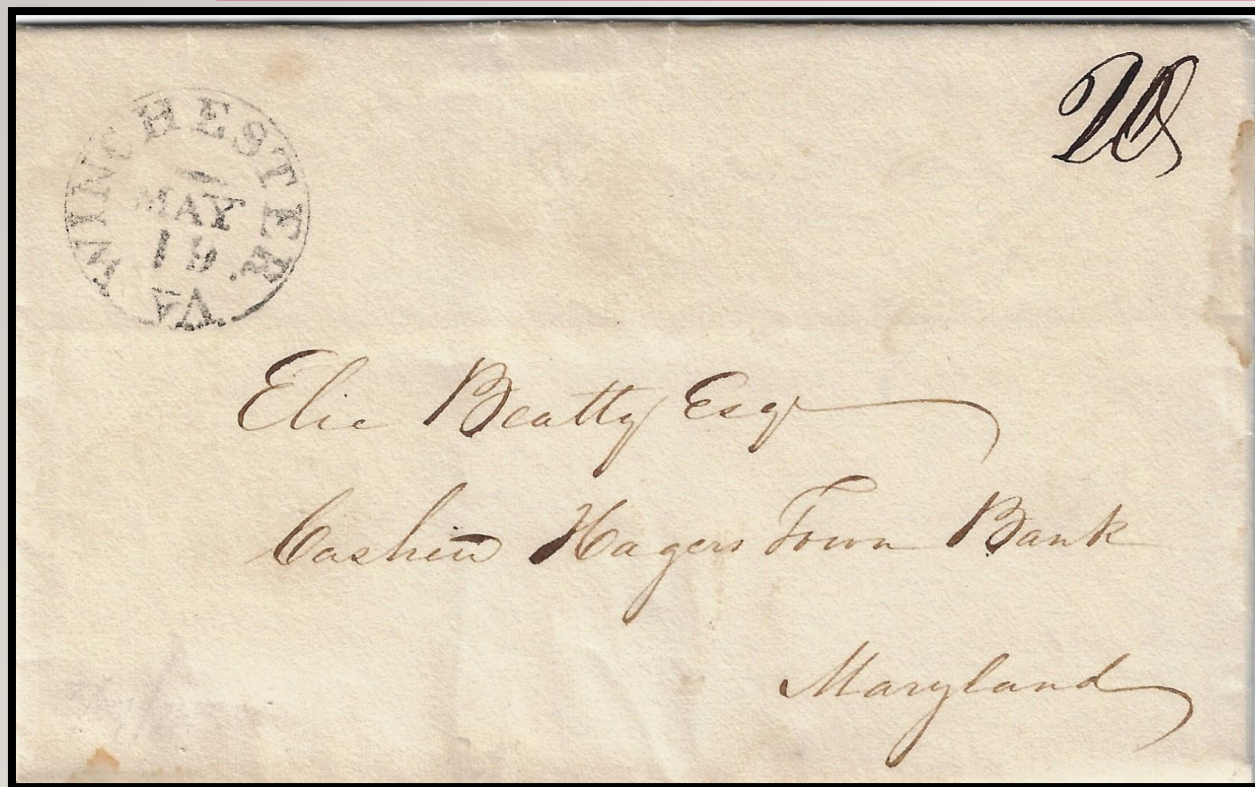 WINCHESTER. VA
MAY
19.
20
Elie Beatty Esqr
Cashier Hagers Town Bank
Maryland